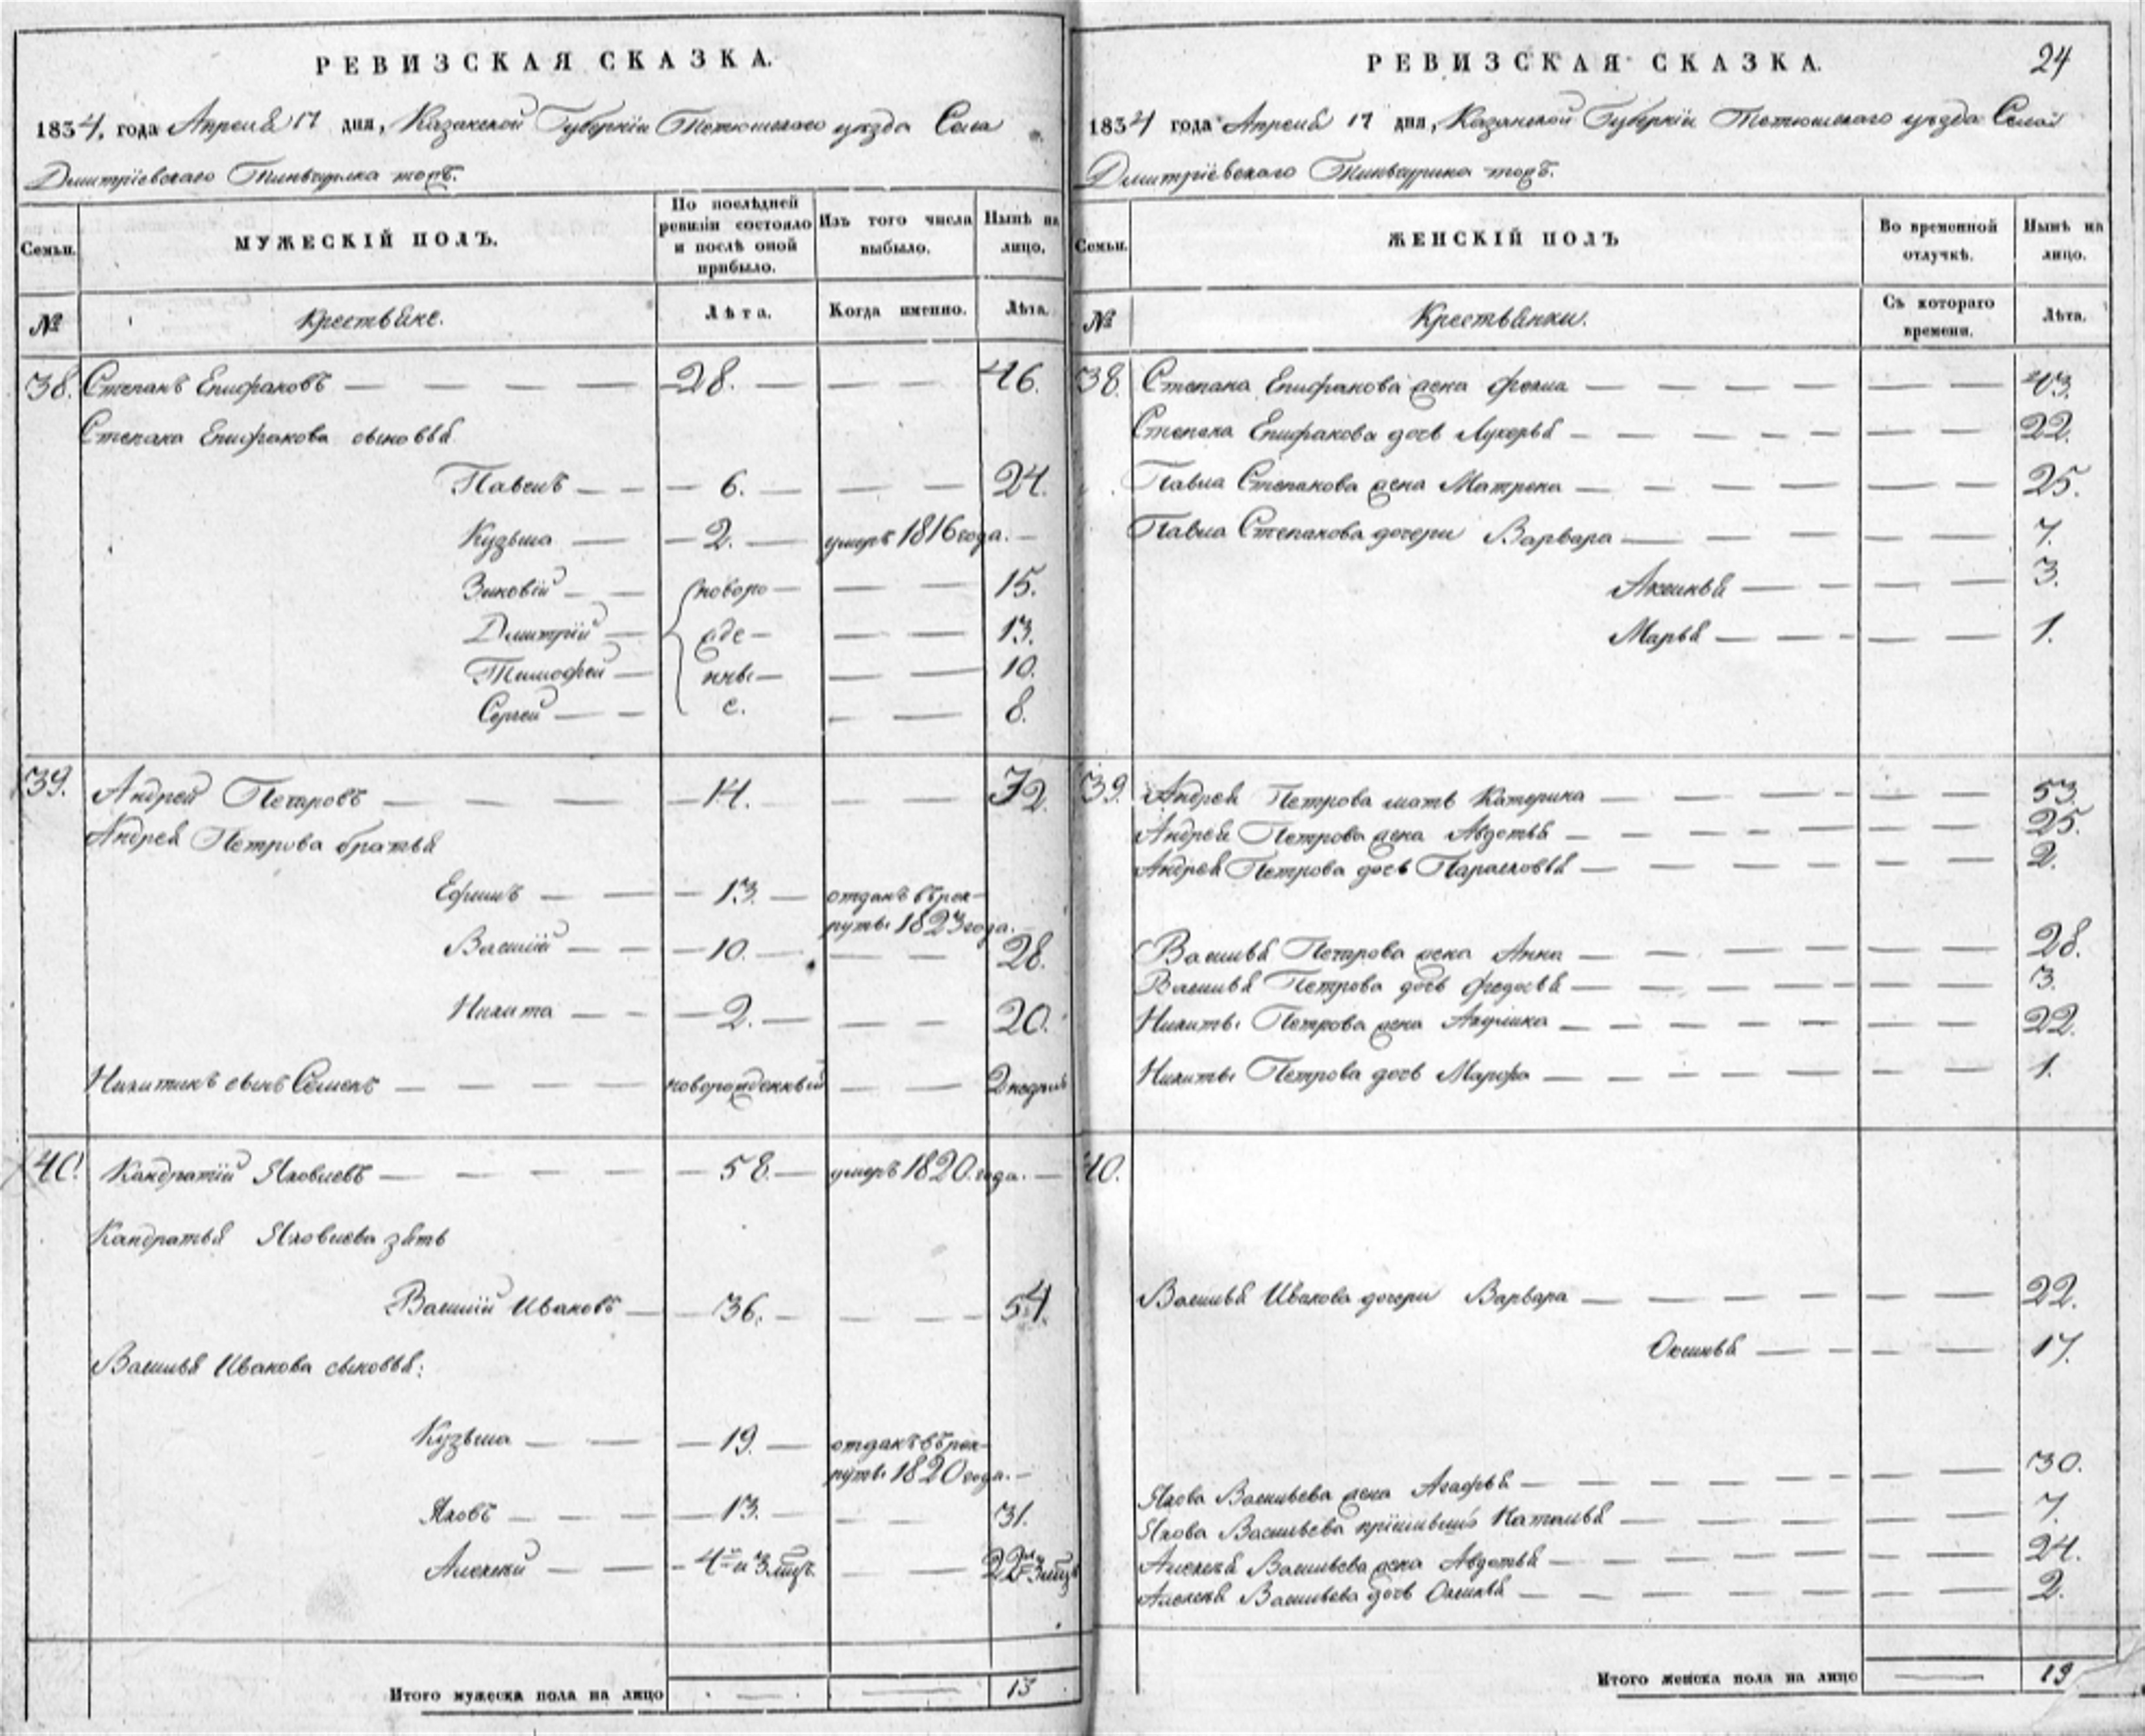 РЕВИЗСКАЯ СКАЗКА.
1834. года Апреля 17 дня, Казанской Губернiи Тетюшскаго уезда Села
Дмитрiевскаго
Семьи.
МУЖЕСКIЙ ПОЛЪ.
По послѣдней ревизiи состояло и послѣ оной прибыло.
Изъ того числа выбыло.
Нынѣ на лицо.
№
Крестьяне.
Лѣта.
Когда именно.
Лѣта.
38. Степанъ Епифановъ — 28. — 46.
Степана Епифанова сыновья
Павелъ — 6. — 24.
Кузьма — 2. — умеръ 1816 года. —
Зиновiй — новоро — 15.
Дмитрiй — жде — 13.
Тимофей — нны — 10.
Сергей — е. — 8.
39. Андрей Петровъ — 14. — 32.
Андрея Петрова братья
Ефимъ — 13. — отданъ въ рек-
руты 1823 года.
Василiй — 10. — 28.
Никита — 2. — 20.
Никитинъ сынъ Семенъ — новорожденный — 2 недли
40. Кандратiй Яковлевъ — 58. — умеръ 1820. года. —
Кандратья Яковлева зять
Василiй Ивановъ — 36. — 54.
Василья Иванова сыновья:
Кузьма — 19. — отданъ въ рек-
руты 1820 года. —
Яковъ — 13. — 31.
Алексей — 4 и 3 мц. — 22 3 мц
Итого мужеска пола на лицо — — 13
РЕВИЗСКАЯ СКАЗКА. 24
1834 года Апреля 17 дня, Казанской Губернiи Тетюшскаго уезда Села
Дмитрiевскаго
Семьи.
ЖЕНСКIЙ ПОЛЪ
Во временной отлучкѣ.
Нынѣ на лицо.
№
Крестьянки.
Съ котораго времени.
Лѣта.
38. Степана Епифанова жена Фекла — 43.
Степана Епифанова дочь Лукерья — 22.
Павла Степанова жена Матрена — 25.
Павла Степанова дочери Варвара — 7.
Аксинья — 3.
Марья — 1.
39. Андрея Петрова мать Катерина — 53.
Андрея Петрова жена Авдотья — 25.
Андрея Петрова дочь Парасковья — 2.
Василья Петрова жена Анна — 28.
Василья Петрова дочь Федосья — 3.
Никиты Петрова жена Акулина — 22.
Никиты Петрова дочь Марфа — 1.
40.
Василья Иванова дочери Варвара — 22.
Оксинья — 17.
Якова Васильева жена Агафья — 30.
Якова Васильева Наталья — 7.
Алексея Васильева жена Авдотья — 24.
Алексея Васильева дочь Оксинья — 2.
Итого женска пола на лицо — 19